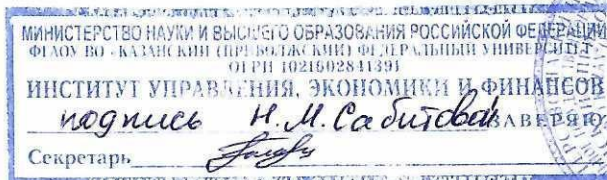 МИНИСТЕРСТВО НАУКИ И ВЫСШЕГО ОБРАЗОВАНИЯ РОССИЙСКОЙ ФЕДЕРАЦИИ
ФГАОУ ВО «КАЗАНСКИЙ (ПРИВОЛЖСКИЙ) ФЕДЕРАЛЬНЫЙ УНИВЕРСИТЕТ»
ОГРН 1021602841391
ИНСТИТУТ УПРАВЛЕНИЯ, ЭКОНОМИКИ И ФИНАНСОВ
подпись Н.М. Сабитовой ЗАВЕРЯЮ
Секретарь